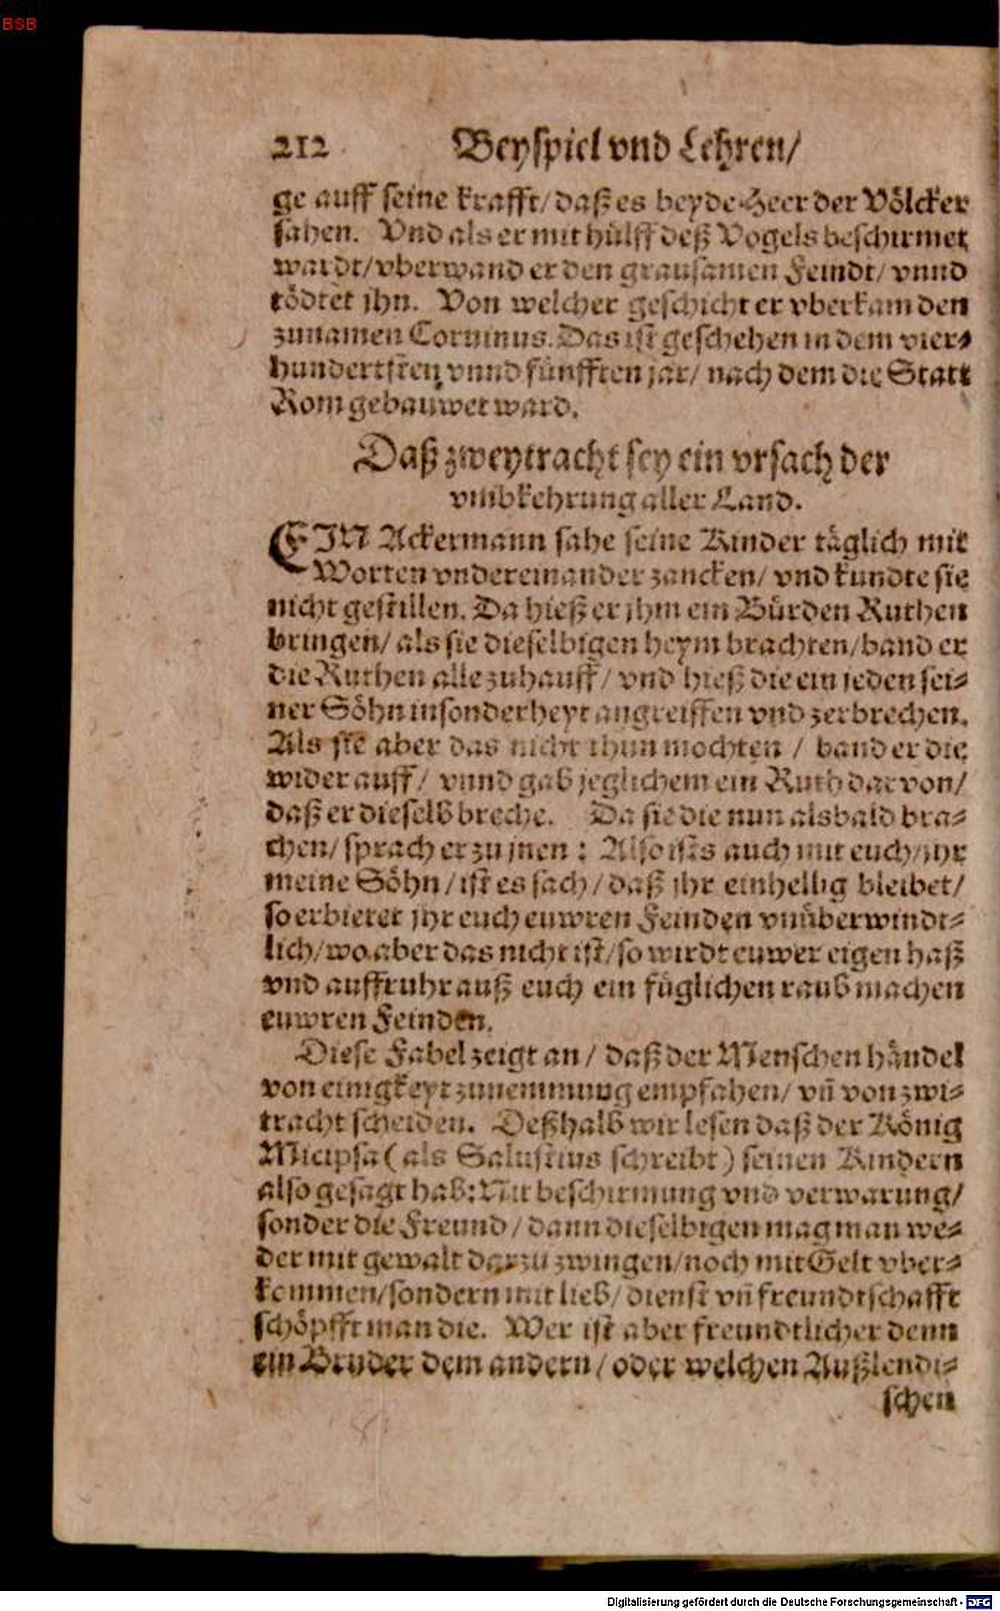 BSB
212 Beyspiel vnd Lehren/
ge auff seine krafft/ daß es beyde Heer der Völcker
sahen. Vnd als er mit hülff deß Vogels beschirmet
wardt/ vberwand er den grausamen Feindt/ vnnd
tödtet jhn. Von welcher geschicht er vberkam den
zunamen Coruinus. Das ist geschehen in dem vier⸗
hundertsten vnnd fünfften jar/ nach dem die Statt
Rom gebauwet ward.
Daß zweytracht sey ein vrsach der
vmbkehrung aller Land.
EIN Ackermann sahe seine Kinder täglich mit
Worten vndereinander zancken/ vnd kundte sie
nicht gestillen. Da hieß er jhm ein Bürden Ruthen
bringen/ als sie dieselbigen heym brachten/ band er
die Ruthen alle zuhauff/ vnd hieß die ein jeden sei⸗
ner Söhn insonderheyt angreiffen vnd zerbrechen.
Als sie aber das nicht thun mochten / band er die
wider auff/ vnnd gab jeglichem ein Ruth darvon/
daß er dieselb breche. Da sie die nun alsbald bra⸗
chen/ sprach er zu jnen : Also ists auch mit euch/ jhr
meine Söhn/ ist es sach/ daß jhr einhellig bleibet/
so erbietet jhr euch euwren Feinden vnüberwindt⸗
lich/ wo aber das nicht ist/ so wirdt euwer eigen haß
vnd auffruhr auß euch ein füglichen raub machen
euwren Feinden.
Diese Fabel zeigt an/ daß der Menschen händel
von einigkeyt zunemmung empfahen/ vñ von zwi⸗
tracht scheiden. Deßhalb wir lesen daß der König
Micipsa (als Salustius schreibt) seinen Kindern
also gesagt hab: Nit beschirmung vnd verwarung/
sonder die Freund/ dann dieselbigen mag man we⸗
der mit gewalt darzu zwingen/ noch mit Gelt vber⸗
kommen/ sondern mit lieb/ dienst vñ freundtschafft
schöpfft man die. Wer ist aber freundtlicher denn
ein Bruder dem andern/ oder welchen Außlendi⸗
schen
Digitalisierung gefördert durch die Deutsche Forschungsgemeinschaft - DFG